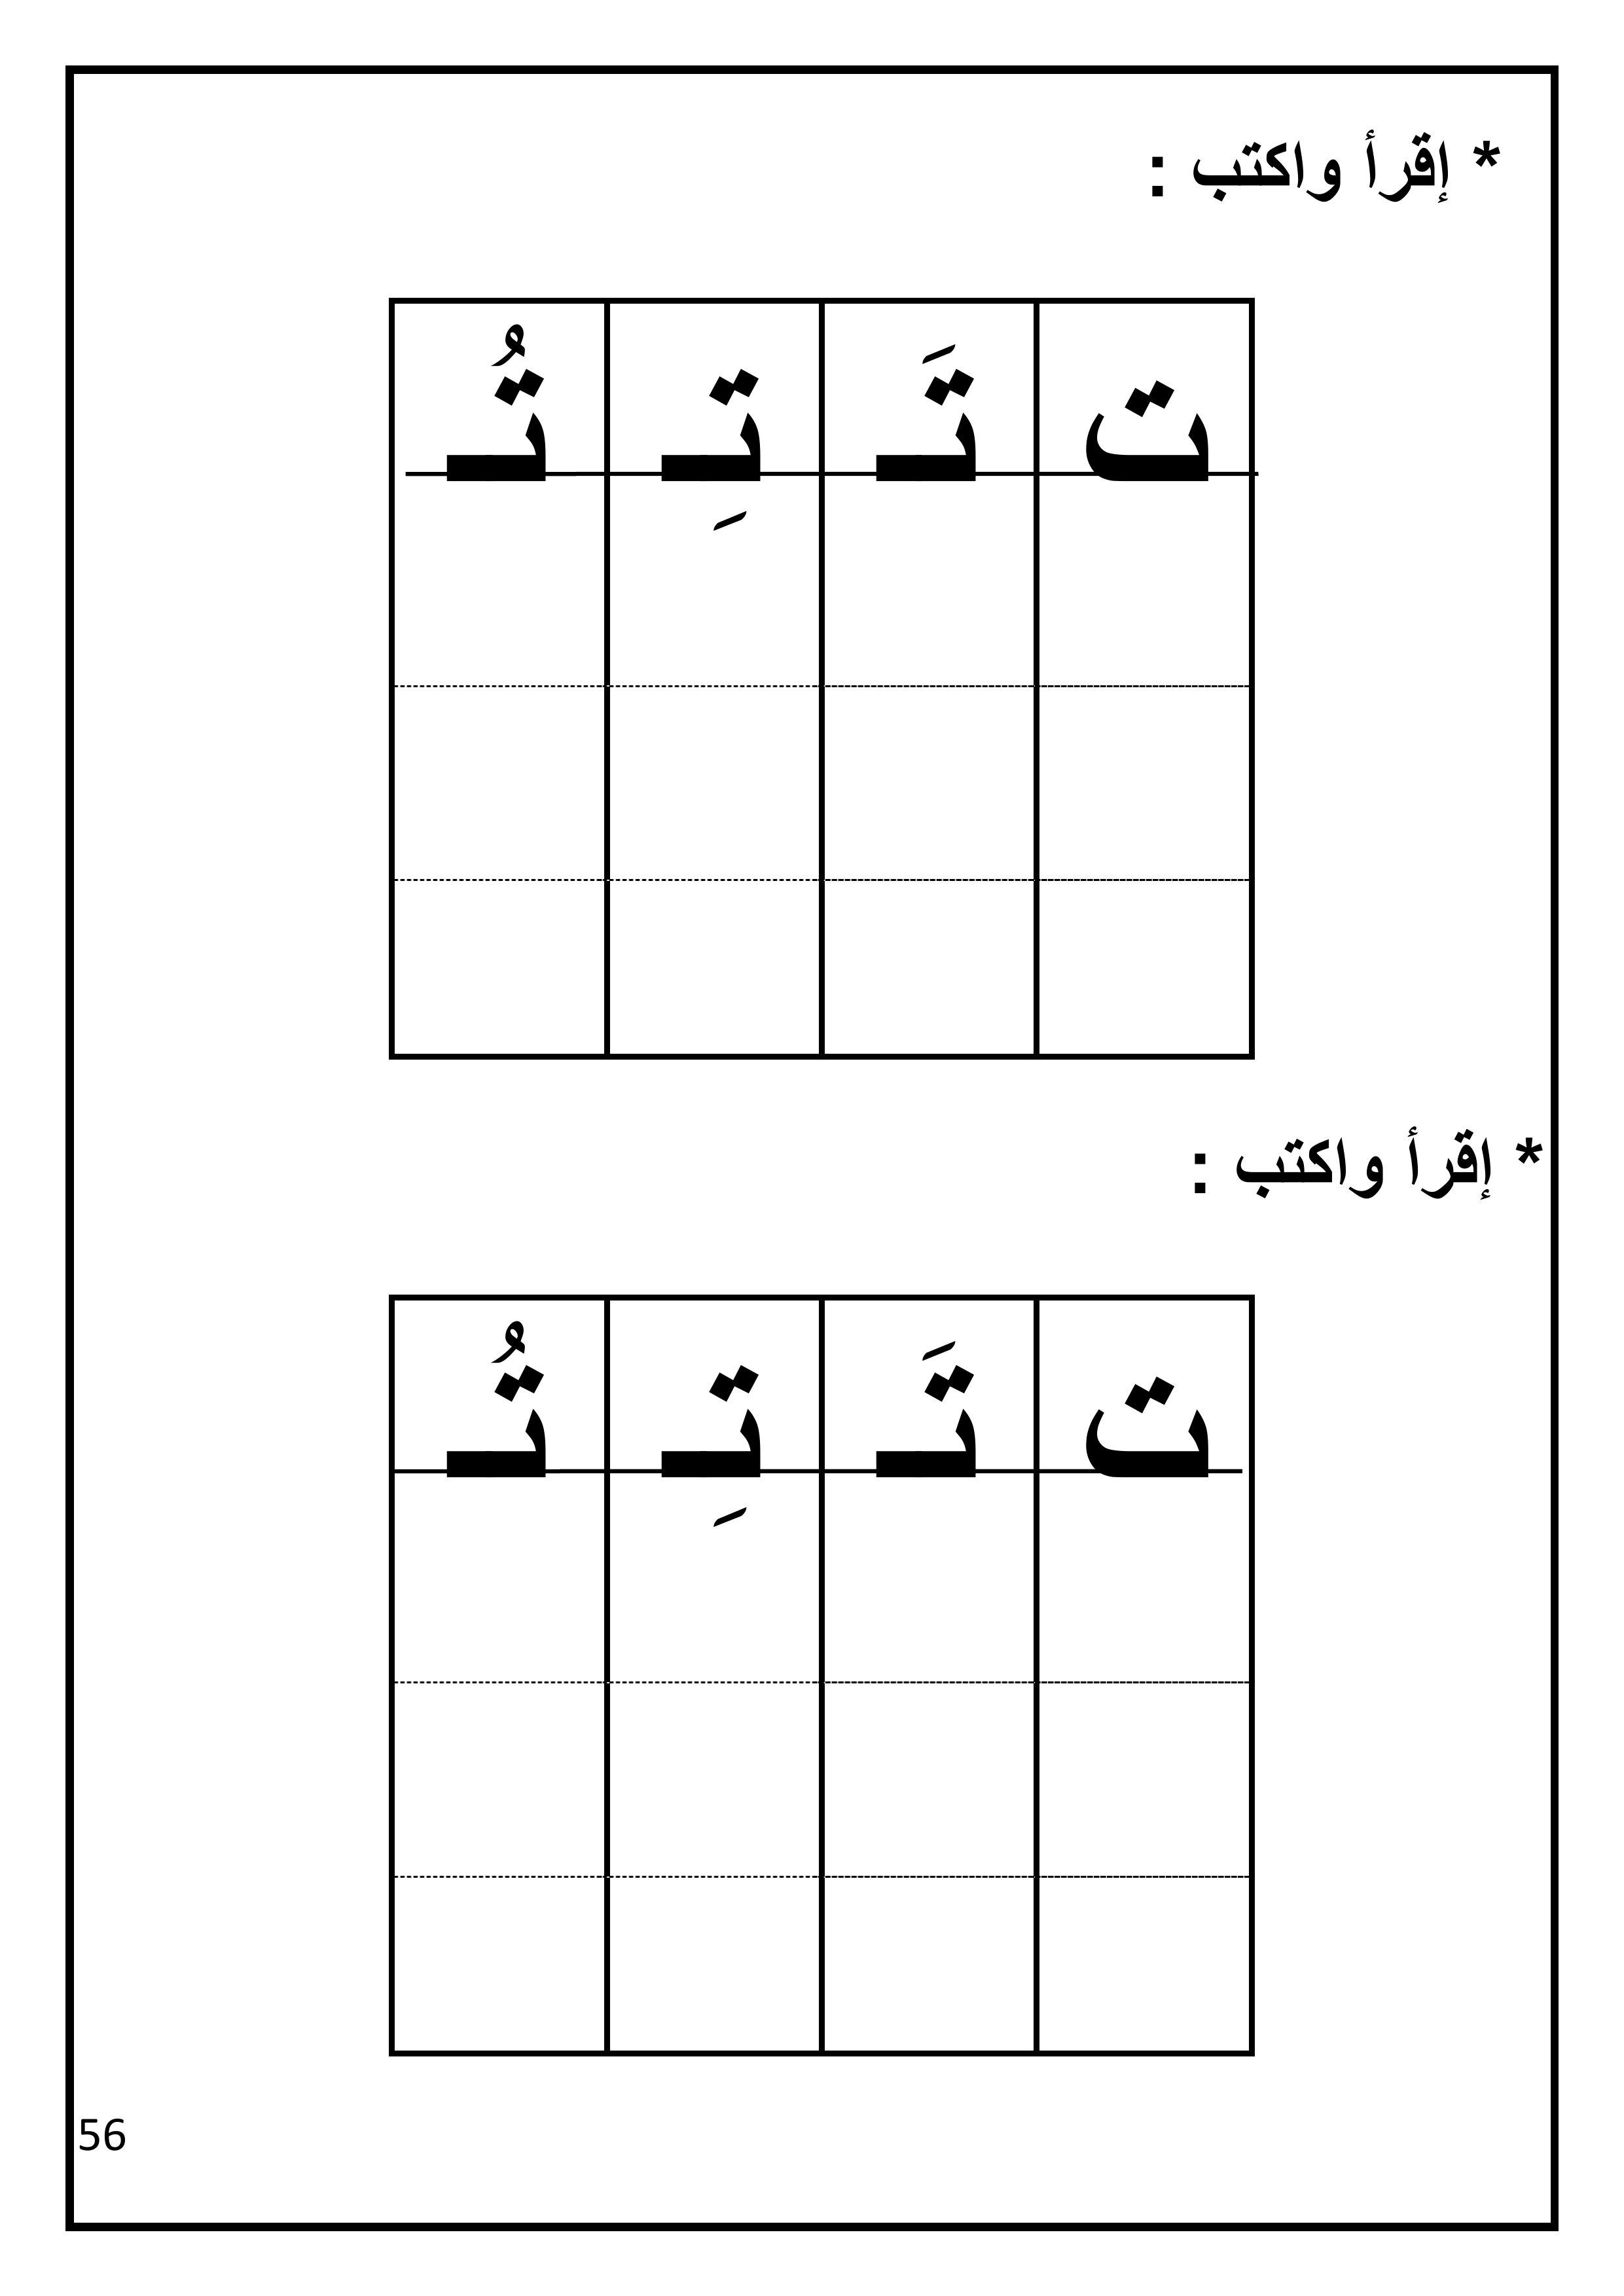 * إقرأ واكتب :
ت تَـ تِـ تُـ
* إقرأ واكتب :
ت تَـ تِـ تُـ
56